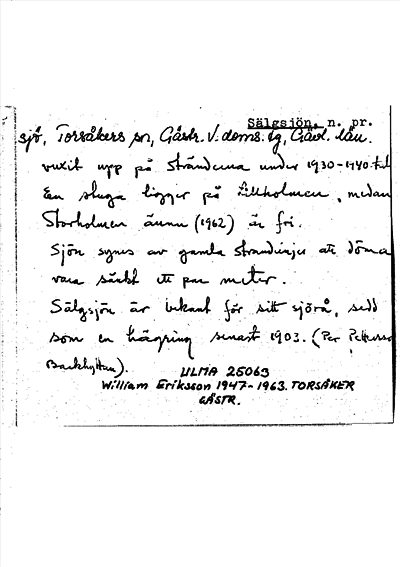 Sälgsjön, n. pr.
sjö, Torsåkers sn, Gästr. V. doms. tg, Gävl. län.
vuxit upp på stränderna under 1930-1940-tal
En stuga ligger på Lillholmen, medan
Storholmen ännu (1962) är fri.
Sjön synes av gamla strandlinjer att döma
vara sänkt ett par meter.
Sälgsjön är bekant för sitt sjörå, sedd
som en hägring senast 1903. (Per Pettersson
Backhyttan).
ULMA 25063
William Eriksson 1947-1963. TORSÅKER
GÄSTR.